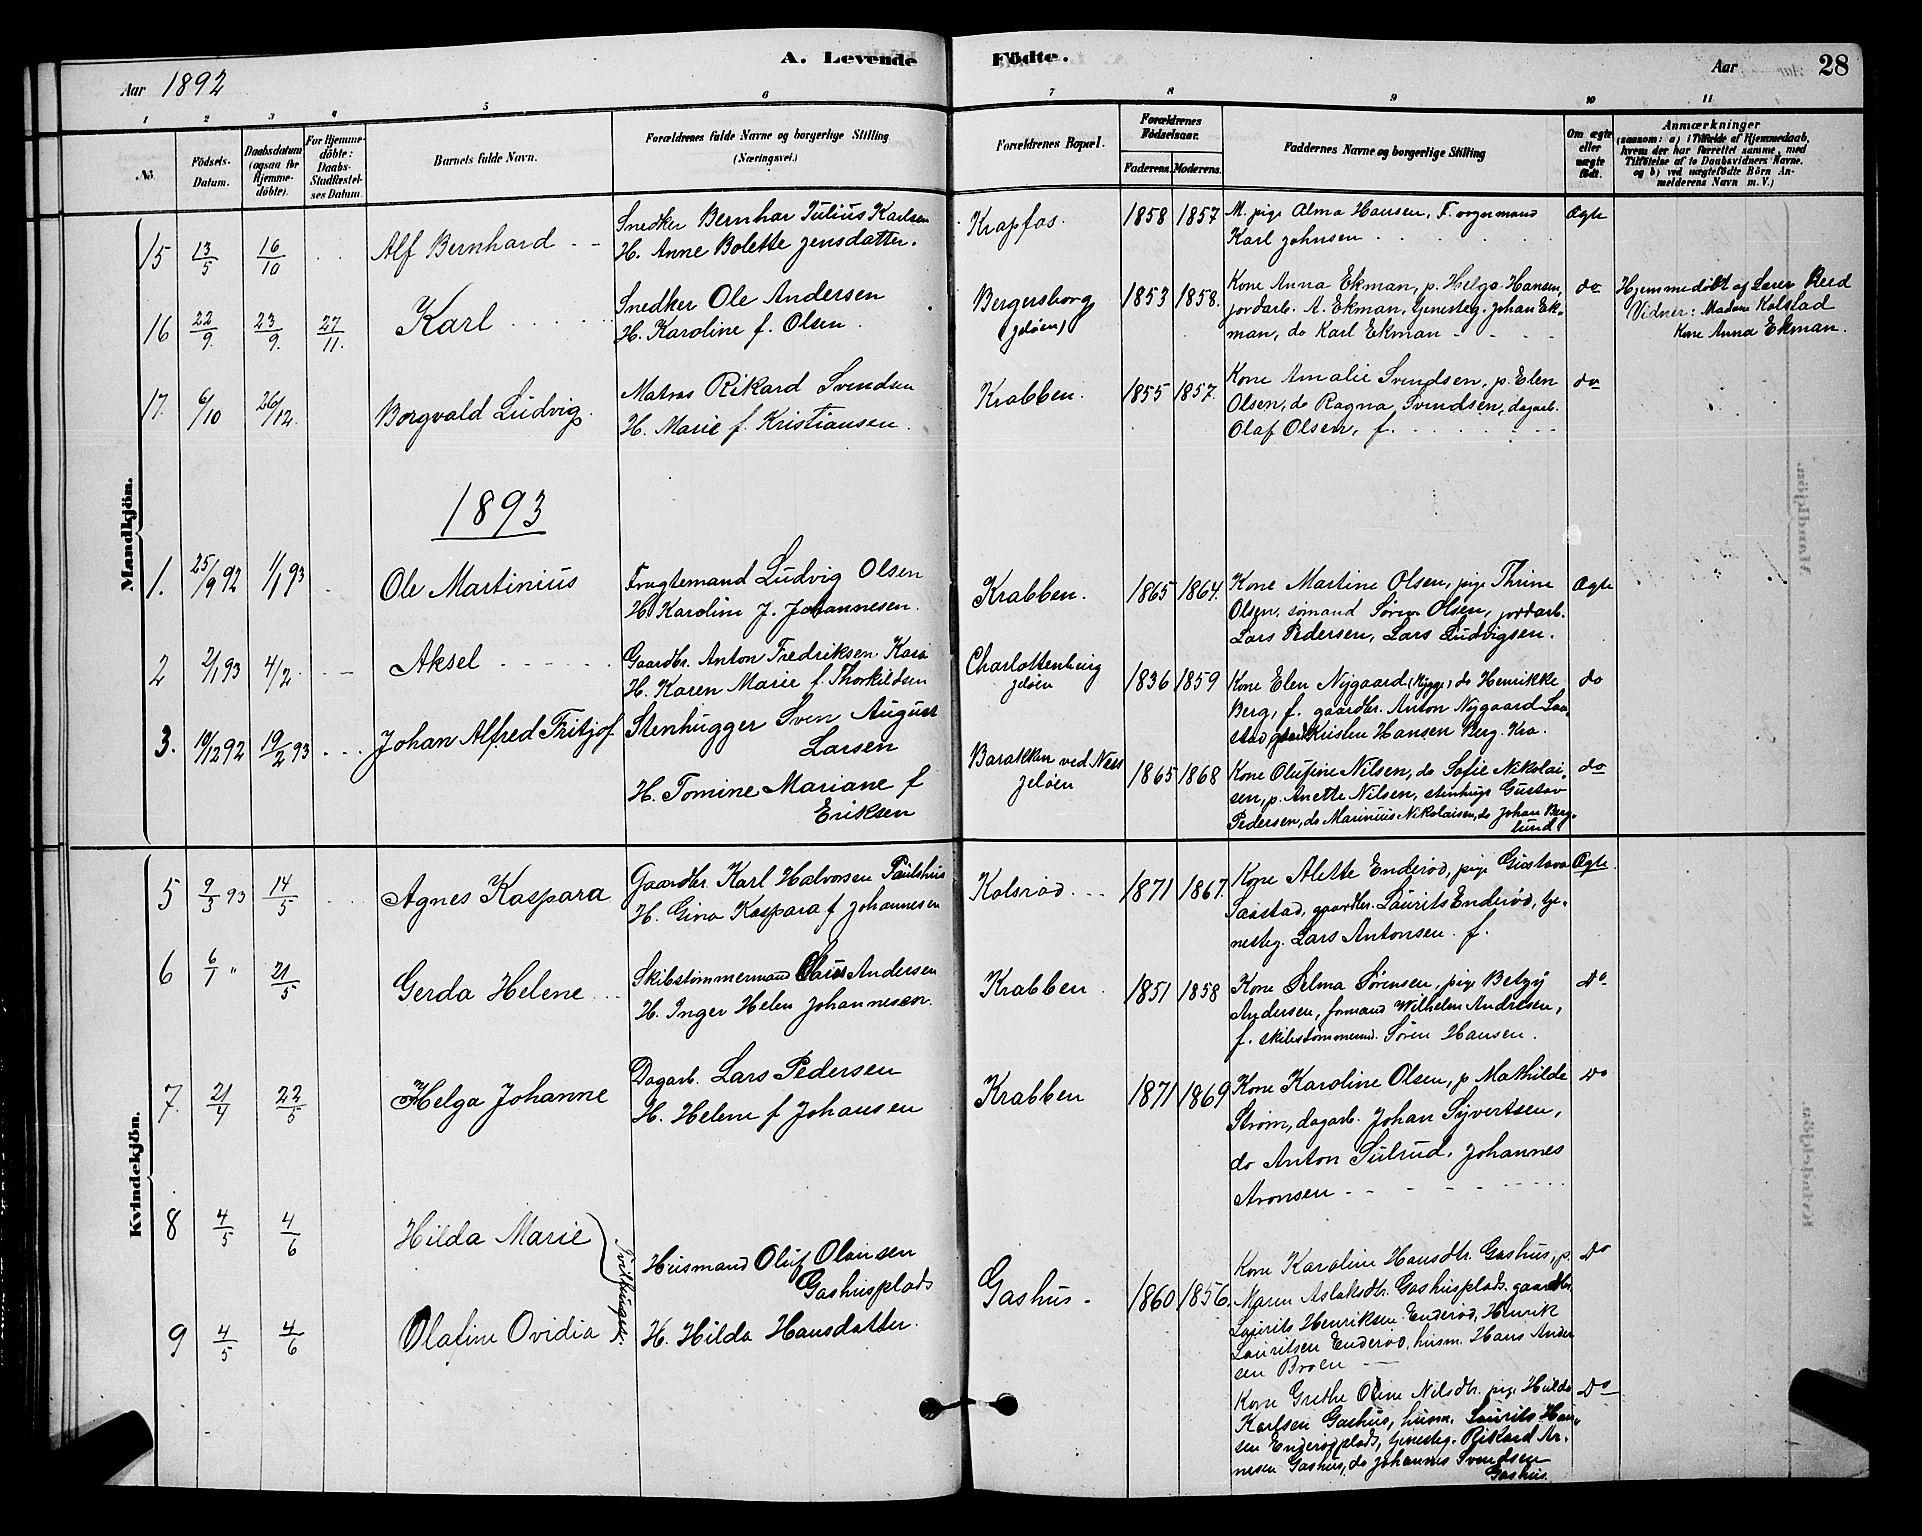 A. Levende Födte.
Aar 1892
Aar 28
1 2 3 4 5 6 7 8 9 10 11
No.
Födsels-Datum.
Daabsdatum (ogsaa for Hjemme-döbte).
For Hjemme-döbte: Daabs-Stadfæstel-ses Datum.
Barnets fulde Navn.
Forældrenes fulde Navne og borgerlige Stilling (Næringsvei.)
Forældrenes Bopæl.
Forældrenes Födselsaar.
Faderens. Moderens.
Faddernes Navne og borgerlige Stilling
Om ægte eller uægte født.
Anmærkninger
(saasom: a) i Tilfælde af Hjemmedaab,
hvem der har forrettet samme, med
Tilföielse af to Daabsvidners Navne.
og b) ved uægtefödte Börn An-
melderens Navn m.V.)
Mandkjön.
15 13/5 16/10 Alf Bernhard
Snedker Bernhar Julius Karlsen
H. Anne Bolette Jensdatter.
Krapfos. 1858 1857
M. pige Alma Hansen, F.
Karl Johnsen
Ægte
16 22/9 23/9. 27/11. Karl
Snedker Ole Andersen
H. Karoline f. Olsen.
Bergersborg
(Jeløen)
1853 1858.
Kone Anna Ekman, p. Helga Hansen,
jordarb. A. Ekman, tjenesteg. Johan Ek-
man, do Karl Ekman
do
Hjemmedøbt af Lærer Reed
Vidner: Madam Kolstad
Kone Anna Ekman.
17. 6/10 26/12. Borgvald Ludvig.
Matros Rikard Svendsen
H. Marie f. Kristiansen.
Krabben. 1855 1857.
Kone Amalie Svendsen, p. Elen
Olsen, do Ragna Svendsen, dagarb.
Olaf Olsen, f.
do
1893
1. 25/9 92 1/1 93 Ole Martinius
Fragtemand Ludvig Olsen
H. Karoline J. Johannesen.
Krabben. 1865 1864.
Kone Martine Olsen, pige Thrine
Olsen, sømand Søren Olsen, jordarb.
Lars Pedersen, Lars Ludvigsen.
Ægte
2 2/1 93 4/2 Aksel
Gaardbr. Anton Fredriksen Kasa
H. Karen Marie f. Thorkildsen
Charlottenburg
Jeløen
1836 1859
Kone Elen Nygaard (Rygge) do Henrikke
Berg, f. gaardbr. Anton Nygaard Saa-
stad, Kristen Hansen Berg. Kra.
do
3. 19/12 92 19/2 93 Johan Alfred Fritjof
Stenhugger Sven August
Larsen
H. Tomine Mariane f
Eriksen
Barakken ved Næs
Jeløen
1865 1868
Kone Olufine Nilsen, do Sofie Nikolai-
sen, p. Anette Nilsen, stenhug. Gustav
Pedersen, do Marinius Nikolaisen, do Johan Berg-
lund.
do
Kvindekjön.
5 9/3 93 14/5 Agnes Kaspara
Gaardbr. Karl Halvorsen Paulshus
H. Gina Kaspara f Johannesen
Kolsrød 1871 1867.
Kone Alette Enderød, pige Gustava
Saastad, gaardbr. Laurits Enderød, tje-
nesteg. Lars Antonsen. f.
Ægte
6 6/1 " 21/5 Gerda Helene
Skibstømmermand Claus Andersen
H. Inger Helen Johannesen.
Krabben. 1851 1858
Kone Selma Sørensen, pige Betzy
Andersen, formand Wilhelm Andresen,
f. skibstømmermd. Søren Hansen.
Do
7. 21/4 22/5 Helga Johanne
Dagarb. Lars Pedersen
H. Helene f Johansen
Krabben 1871 1869
Kone Karoline Olsen, p Mathilde
Strøm, dagarb. Johan Syvertsen,
do Anton Sulrud, Johannes
Aronsen
Do
8 4/5 4/6 Hilda Marie
9 4/5 4/6 Olafine Ovidia
Husmand Oluf Olausen
Gashusplads
H. Hilda Hansdatter.
Gashus. 1860 1856.
Kone Karoline Hansdtr. Gashus, p.
Maren Aslaksdtr. Gashusplads, gaardbr.
Laurits Henriksen Enderød, Henrik
Lauritsen Enderød, husm. Hans Ander
sen Broen
Do
Kone Grethe Oline Nilsdtr. pige Hulda
Karlsen Gashus, husm. Laurits Han-
sen Enderødplads, tjenesteg. Rikard Ar-
nesen Gashus, do Johannes Svendsen
Gashus.
Do